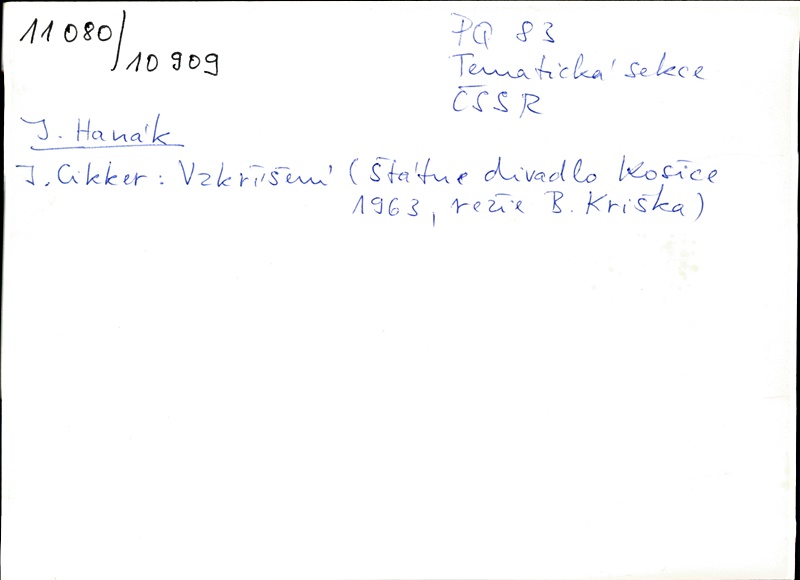 11 080/10 909
PQ 83
Tematická sekce
ČSSR
J. Hanák
J. Cikker: Vzkříšení (Štátne divadlo Košice
1963, režie B. Kriška)